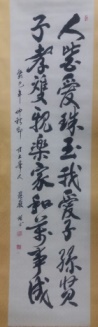 人皆愛珠玉我愛子孫賢
子孝雙親樂家和萬事成